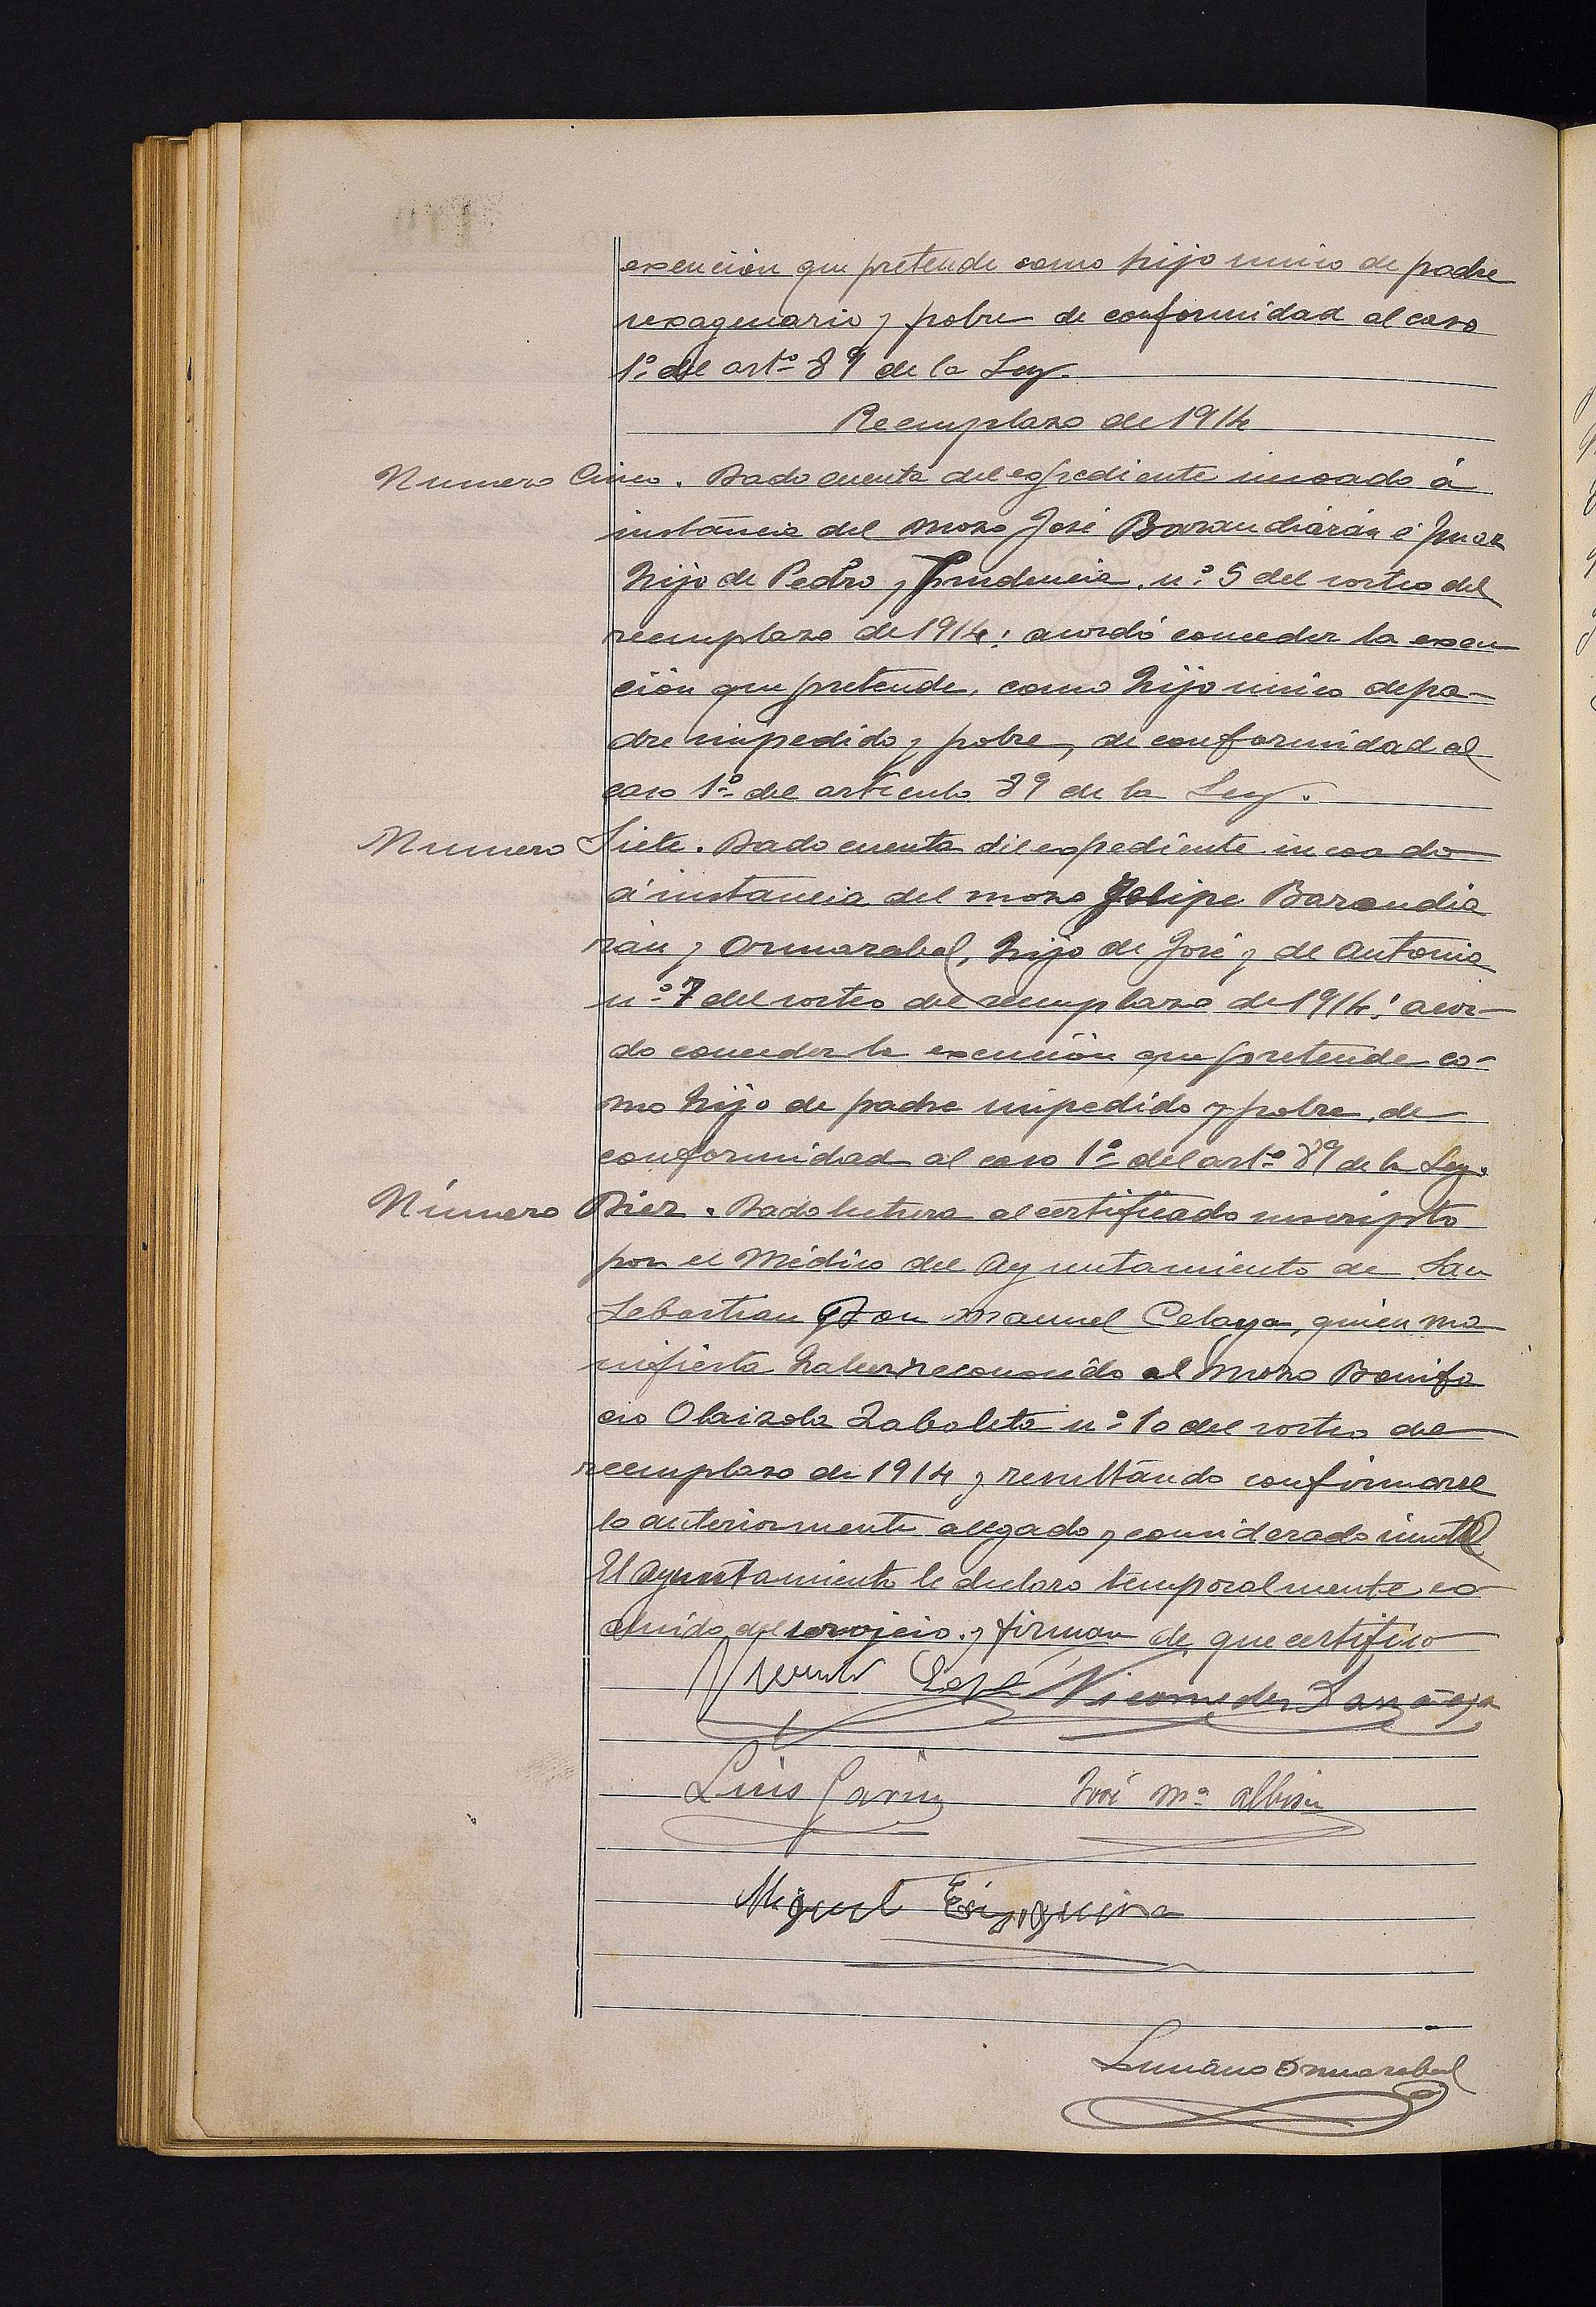 exención que pretende como hijo unico de padre
sexagenario y pobre de conformidad al caso
1º del artº 89 de la Ley.
Reemplazo de 1914
Numero Cinco. Dado cuenta del expediente incoado á
instancia del mozo José Barandiárán é
hijo de Pedro y Prudencia, nº 5 del sorteo del
reemplazo de 1914: acordó conceder la exen
ción que pretende, como hijo unico de pa-
dre impedido y pobre, de conformidad al
caso 1º del artículo 89 de la Ley.
Numero Siete. Dado cuenta del expediente incoado
á instancia del mozo Felipe Barandia
rán y Ormazabal, hijo de José y de Antonia
nº 7 del sorteo del reemplazo de 1914: acor-
do conceder la exención que pretende co-
mo hijo de padre impedido y pobre, de
conformidad al caso 1º del artº 89 de la Ley.
Número Diez. Dado lectura al certificado suscripto
por el Médico del Ayuntamiento de San
Sebastian Don Manuel Celaya, quien ma
nifiesta haber reconocido al mozo Bonifa
cio Olaizola Zabaleta nº 10 del sorteo del
reemplazo de 1914 y resultando confirmarse
lo anteriormente alegado y considerado inutil
El Ayuntamiento le declaro temporalmente ex
cluido del servicio. y firman de que certifico
Vicente Nicomedes
Luis Garin José Mª Albisu
Miguel
Luciano Ormazabal